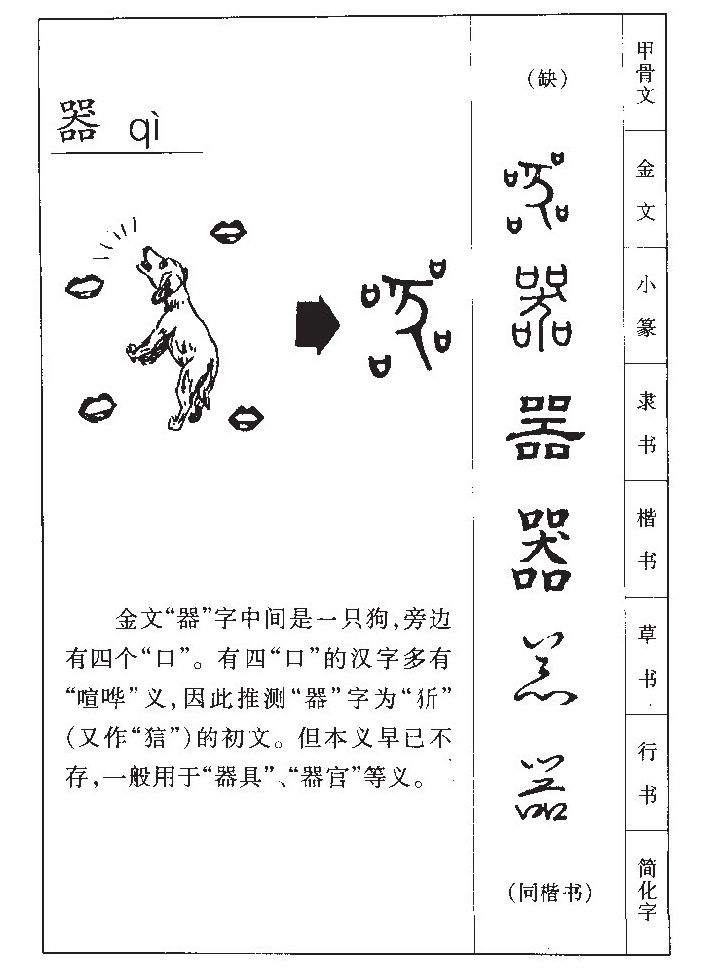 器 qì
金文“器”字中间是一只狗,旁边
有四个“口”。有四“口”的汉字多有
“喧哗”义,因此推测“器”字为“㹞”
(又作“狺”)的初文。但本义早已不
存,一般用于“器具”、“器官”等义。
甲骨文
(缺)
金文
器
小篆
器
隶书
器
楷书
器
草书
器
行书
器
简化字
(同楷书)